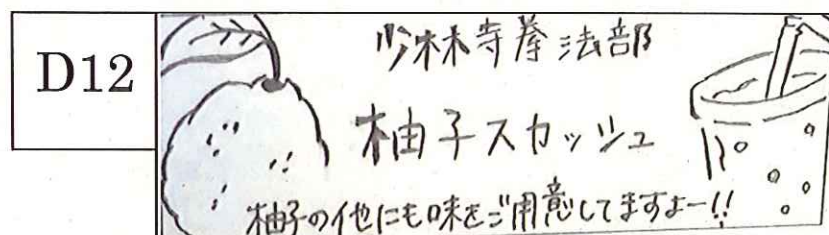 D12
少林寺拳法部
柚子スカッシュ
柚子の他にも味をご用意してますよー!!